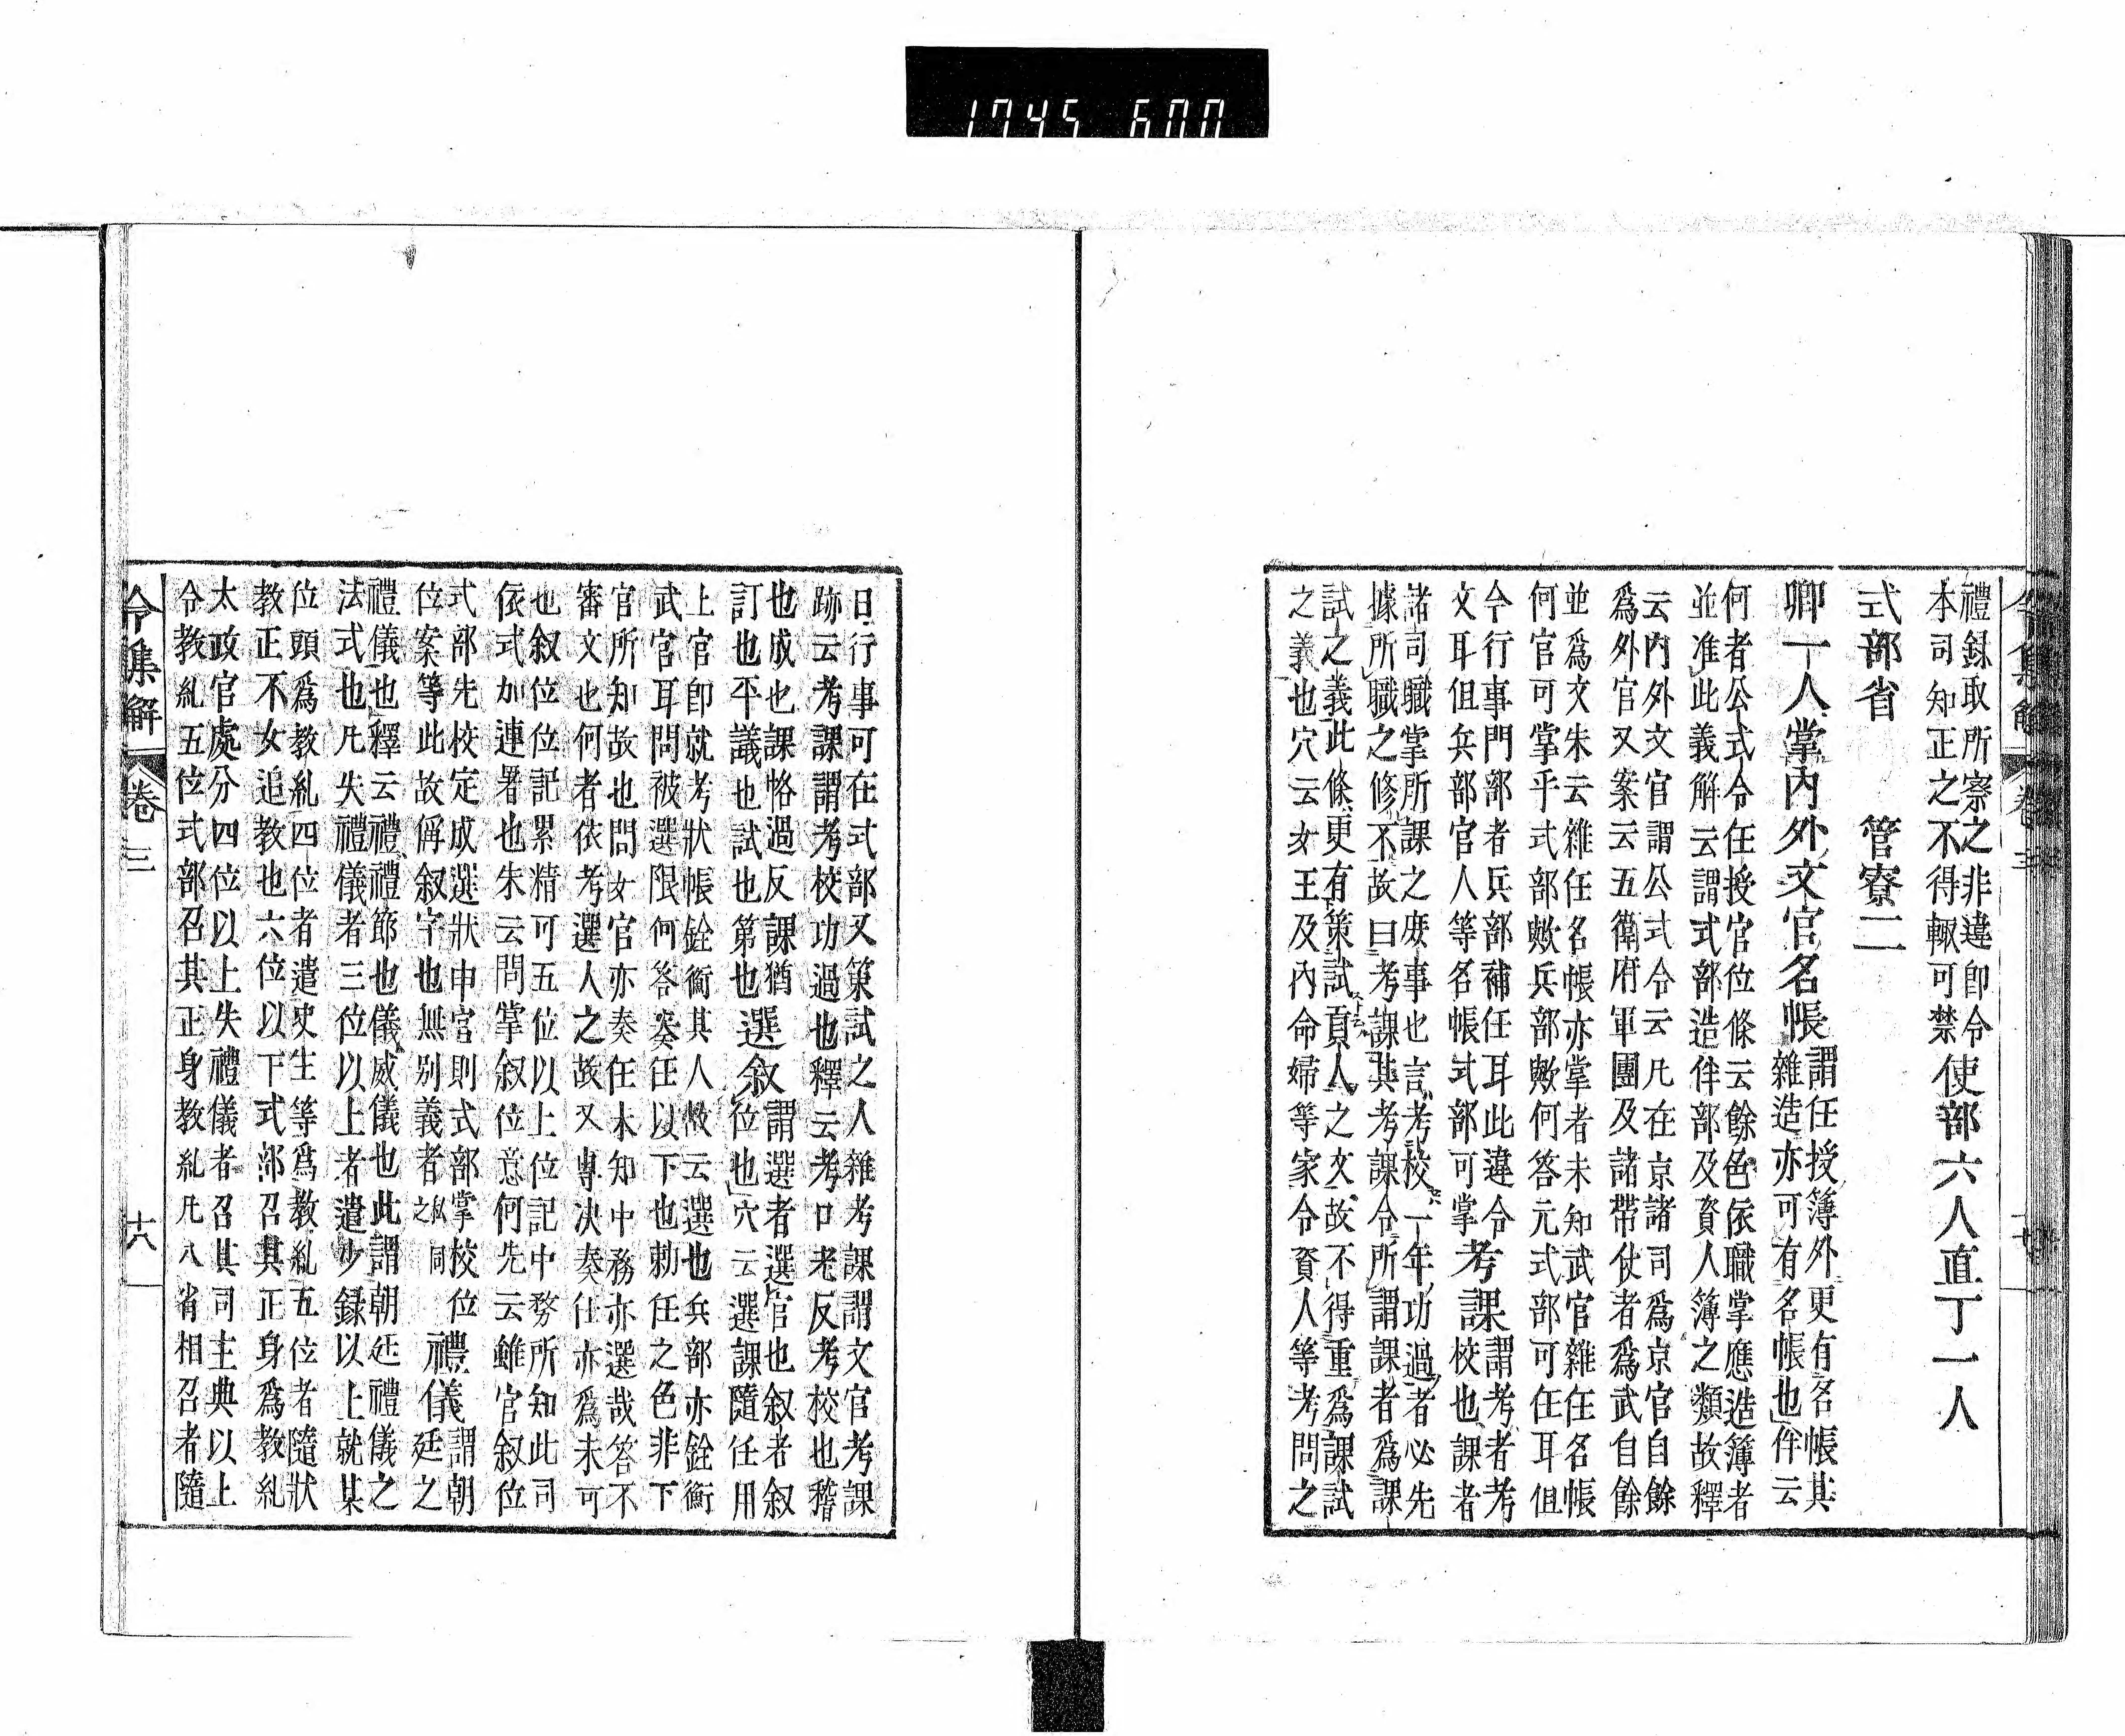 1745 600
禮録取所察之非違即令
本司知正之不得輙可禁使部六人直丁一人
式部省 管寮二
卿一人掌内外文官名帳謂任授簿外更有名帳其
雜造亦可有名帳也伴云
何者公式令任授官位條云餘色依職掌應造簿者
並准此義解云謂式部造伴部及資人簿之類故釋
云内外文官謂公式令云凡在京諸司爲京官自餘
爲外官又案云五衛府軍團及諸帶仗者爲武自餘
並爲文朱云雜任名帳亦掌者未知武官雜任名帳
何官可掌乎式部歟兵部歟何答元式部可任耳但
今行事門部者兵部補任耳此違令
文耳但兵部官人等名帳式部可掌考課謂考者考
校也課者
諸司職掌所課之庶事也言考校一年功過者必先
據所職之修不故曰考課其考課令所謂課者爲課
試之義此條更有策試頁人之文故不得重爲課試
之義也穴云女王及内命婦等家令資人等考問之
日行事可在式部又策試之人雜考課謂文官考課
跡云考課謂考校功過也釋云考口老反考校也稽
也成也課恪過反課猶
訂也平議也試也第也選叙謂選者選官也叙者叙
位也穴云選課隨任用
上官即就考狀帳銓衡其人故云選也兵部亦銓衡
武官耳問被選限何答奏任以下也勅任之色非下
官所知故也問女官亦奏任未知中務亦選哉答不
審文也何者依考選人之故又專决奏任亦爲未可
也叙位位記累精可五位以上位記中務所知此司
依式加連署也朱云問掌叙位意何先云雖官叙位
式部先校定成選狀申官則式部掌校位
位案等此故偁叙字也無別義者私同之禮儀謂朝
廷之
禮儀也釋云禮禮節也儀威儀也此謂朝廷禮儀之
法式也凡失禮儀者三位以上者遣少録以上就某
位頭爲教糺四位者遣史生等爲教糺五位者隨狀
教正不女追教也六位以下式部召其正身爲教糺
太政官處分四位以上失禮儀者召其司主典以上
令教糺五位式部召其正身教糺凡八省相召者隨
令集解 卷三 十八